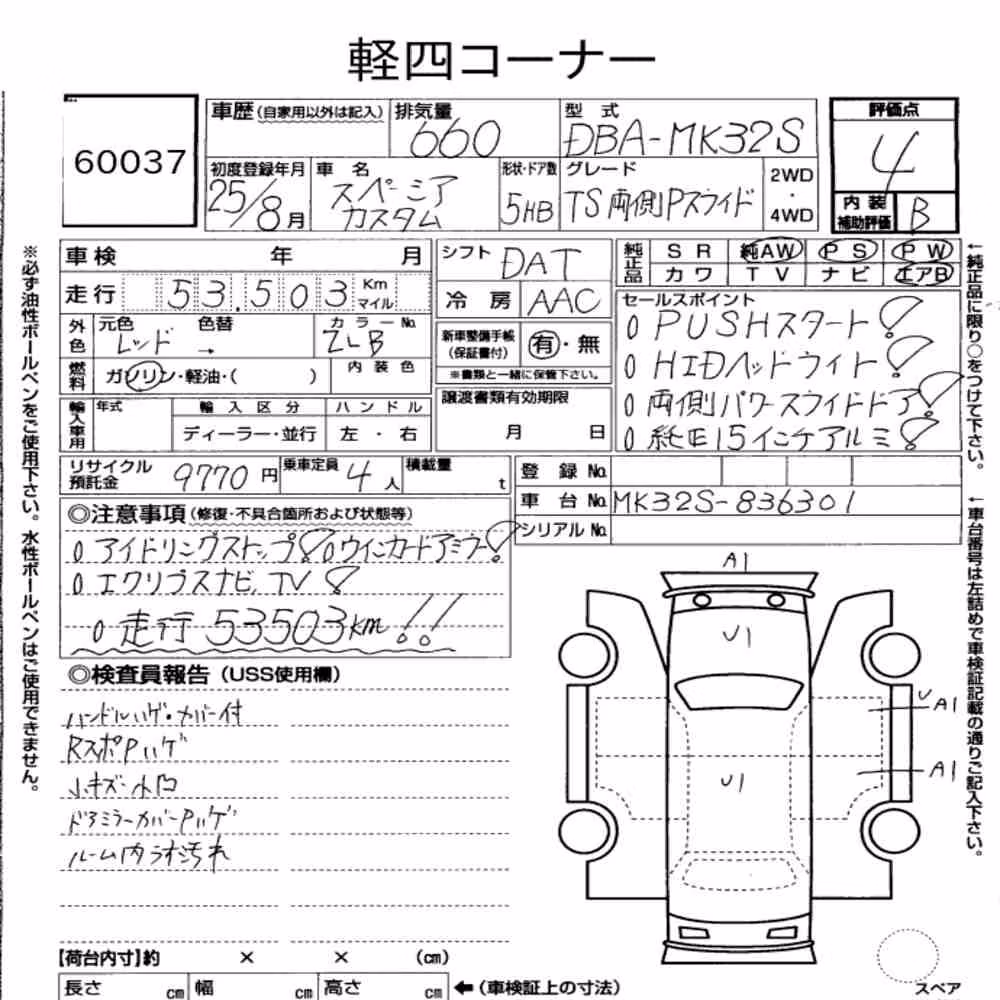 軽四コーナー
60037
車歴(自家用以外は記入)
排気量
660
型式
DBA-MK32S
評価点
4
初度登録年月
25/8月
車名
スペーシア
カスタム
形状・ドア数
5HB
グレード
TS両側Pスライド
2WD
・
4WD
内装
補助評価
B
※必ず油性ボールペンをご使用下さい。水性ボールペンはご使用できません。
車検 年 月
シフト DAT
純正品
SR 純AW PS PW
カワ TV ナビ エアB
走行 53,503 Km
マイル
冷房 AAC
外色
元色 色替
レッド →
カラーNo.
ZLB
新車整備手帳
(保証書付)
有・無
※書類と一緒に保管下さい。
セールスポイント
0 PUSHスタート!
0 HIDヘッドライト!
0 両側パワースライドドア!
0 純正15インチアルミ!
燃料
ガソリン・軽油・( )
内装色
輸入車用
年式
輸入区分
ハンドル
ディーラー・並行
左・右
譲渡書類有効期限
月 日
リサイクル
預託金
9770円
乗車定員
4人
積載量
t
登録No.
車台No.
MK32S-836301
シリアルNo.
◎注意事項(修復・不具合箇所および状態等)
0 アイドリングストップ! 0 ウインカードアミラー!
0 エクリプスナビ,TV!
0 走行 53503km!!
◎検査員報告(USS使用欄)
ハンドルハゲ・カバー付
RスポPハゲ
小キズ・小凹
ドアミラーカバーPハゲ
ルーム内うす汚れ
A1
U1
U
A1
A1
U1
←純正品に限り○をつけて下さい。
↑車台番号は左詰めで車検証記載の通りご記入下さい。
【荷台内寸】約 × × (cm)
長さ cm 幅 cm 高さ cm ←(車検証上の寸法)
スペア